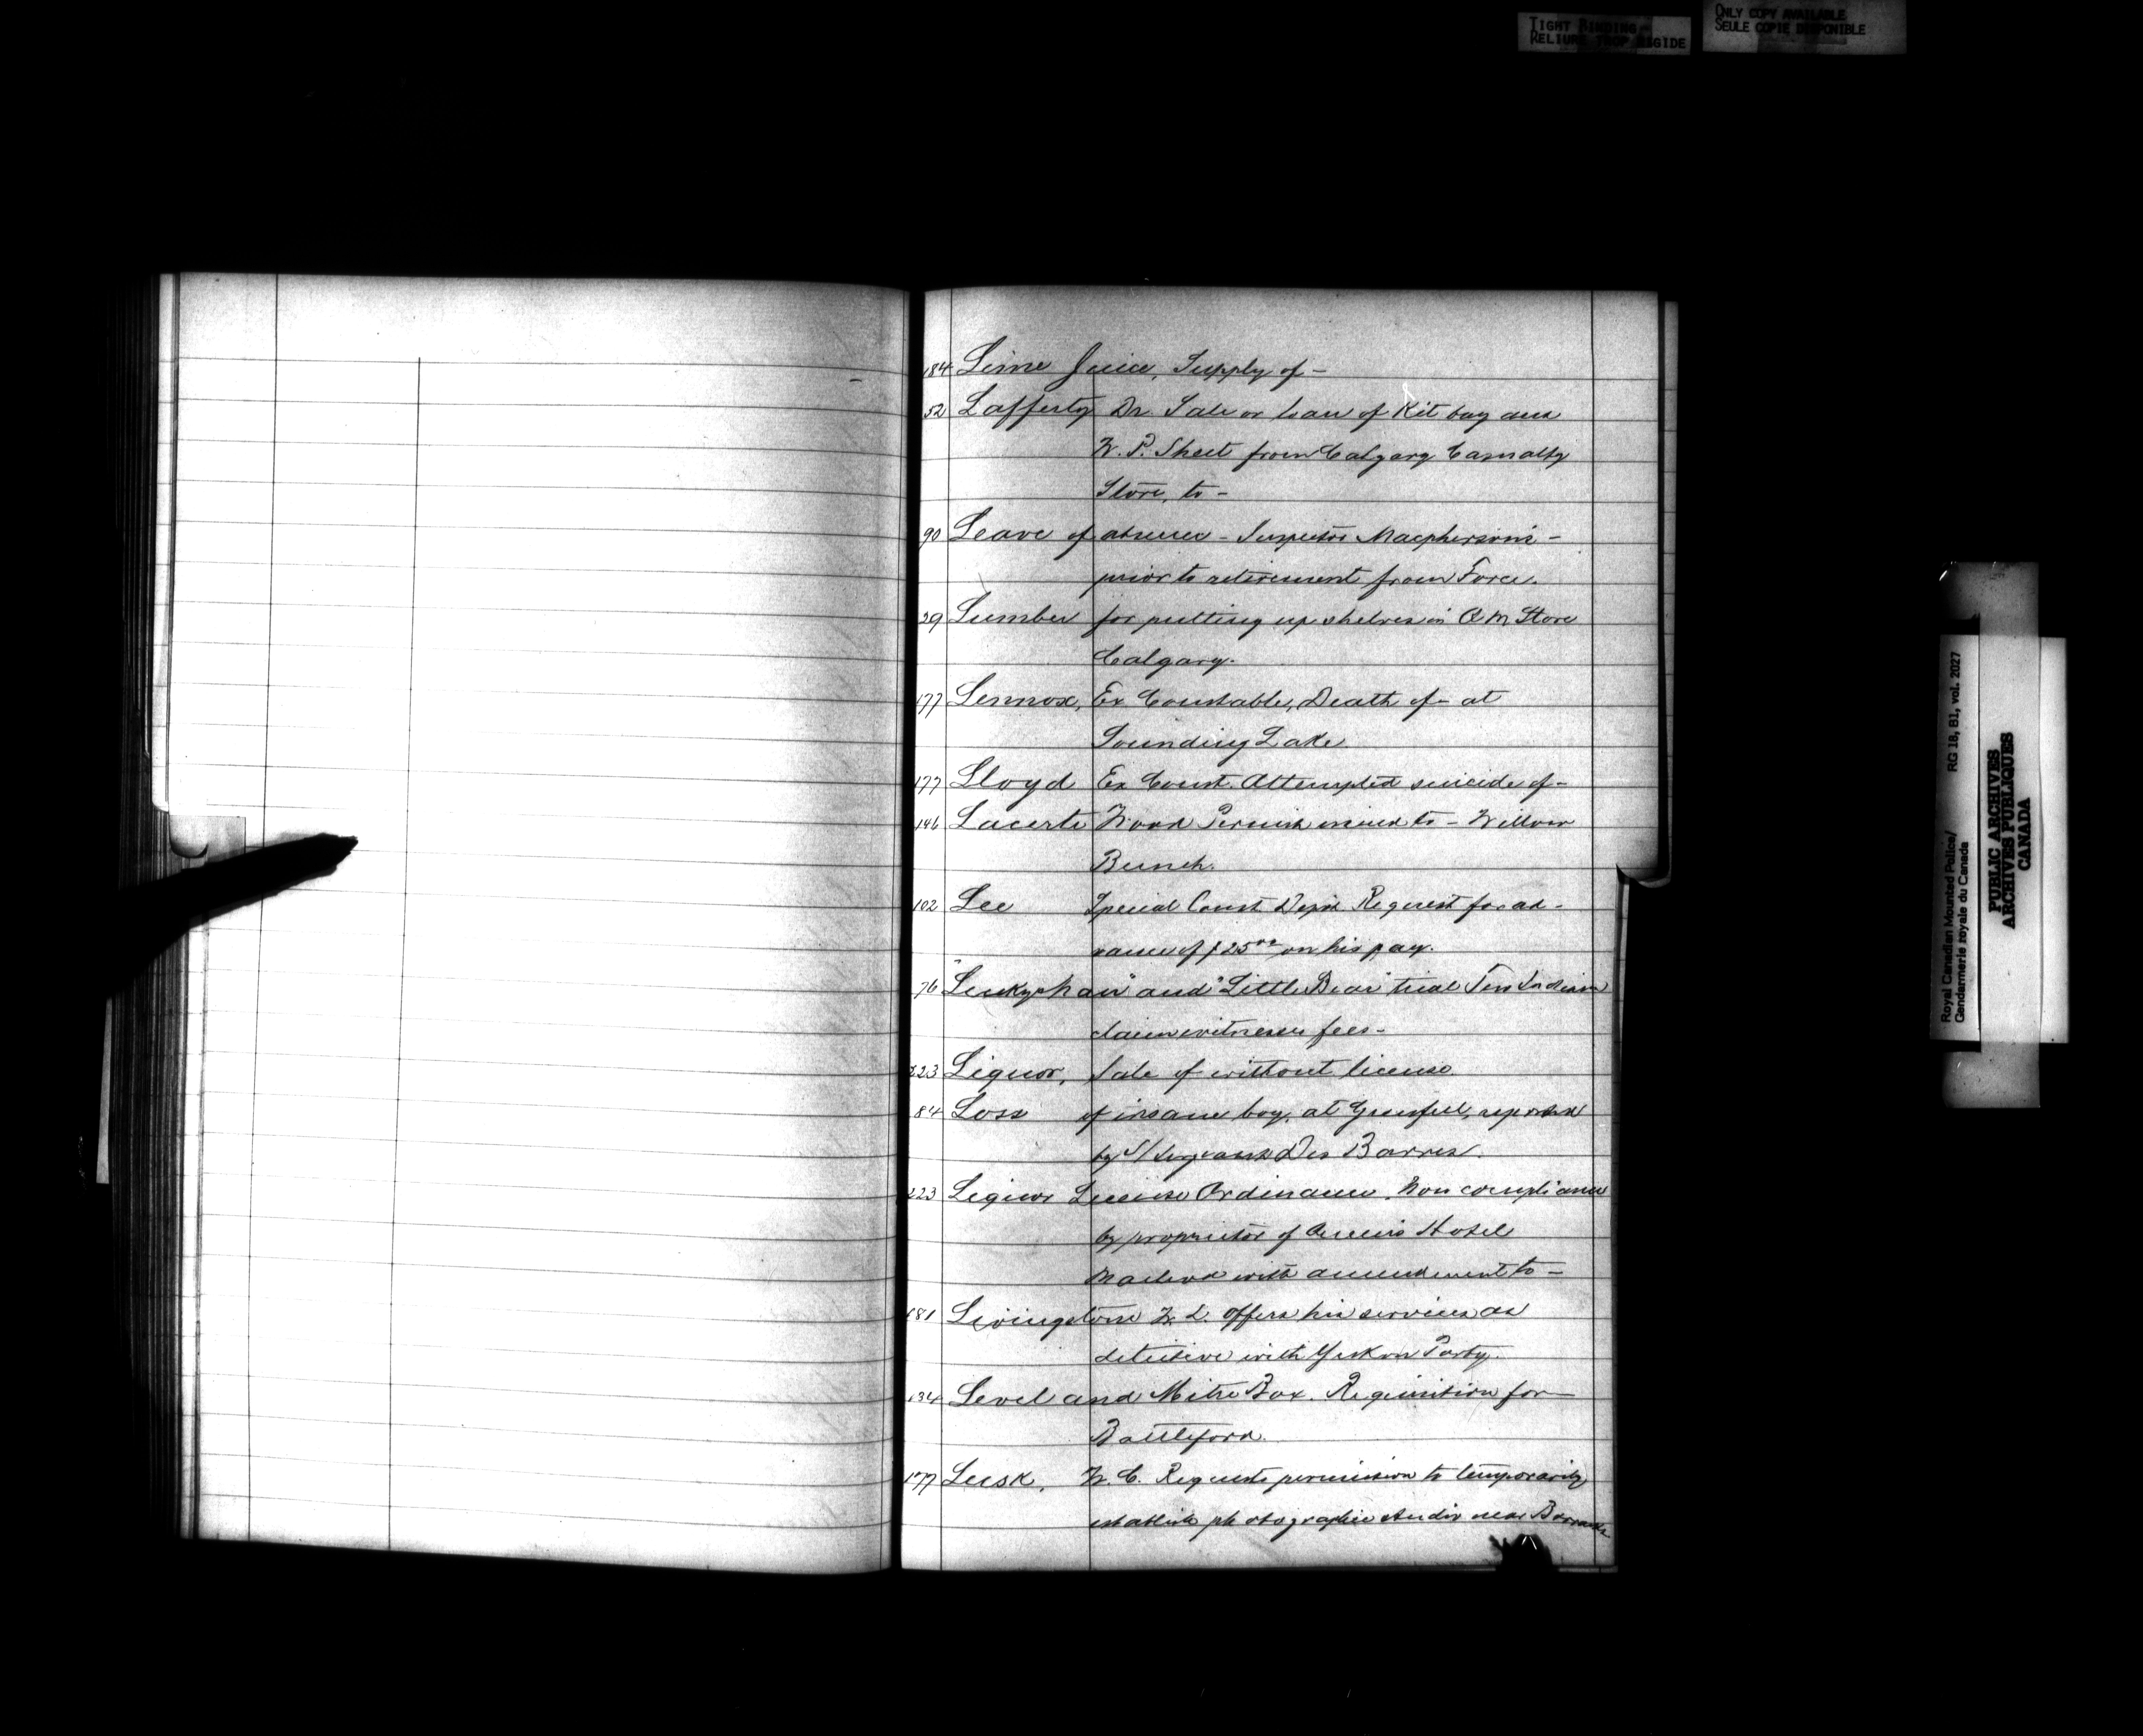 TIGHT BINDING
RELIURE TROP RIGIDE
ONLY COPY AVAILABLE
SEULE COPIE DISPONIBLE
184 Lime Juice, Supply of –
52 Lafferty Dr. Sale or loan of Kit bag and
W. P. Sheet from Calgary Casualty
Store, to –
90 Leave of absence – Inspector Macpherson's –
prior to retirement from Force.
39 Lumber for putting up shelves in Q M Store
Calgary.
177 Lennox, Ex Constable, Death of – at
Sounding Lake
177 Lloyd Ex Const. Attempted suicide of –
146 Lacerte Wood Permit issued to – Willow
Bunch.
102 Lee Special Const. Request for ad-
vance of $25.00 on his pay.
76 "Lucky Man" and "Little Bear" trial Ten Indian
claim witnesses fees –
223 Liquor, Sale of without license
84 Loss of insane boy, at Grenfell, reported
by S/Sergeant Des Barres.
223 Liquor License Ordinance. Non compliance
by proprietor of Queen's Hotel
Macleod with amendment to –
181 Livingstone W. L. offers his services as
detective with Yukon Party.
134 Level and Mitre Box. Requisition for –
Battleford.
177 Lusk, W. C. Requests permission to temporarily
establish photographic studio near Barracks
Royal Canadian Mounted Police/
Gendarmerie royale du Canada
RG 18, B1, vol. 2027
PUBLIC ARCHIVES
ARCHIVES PUBLIQUES
CANADA